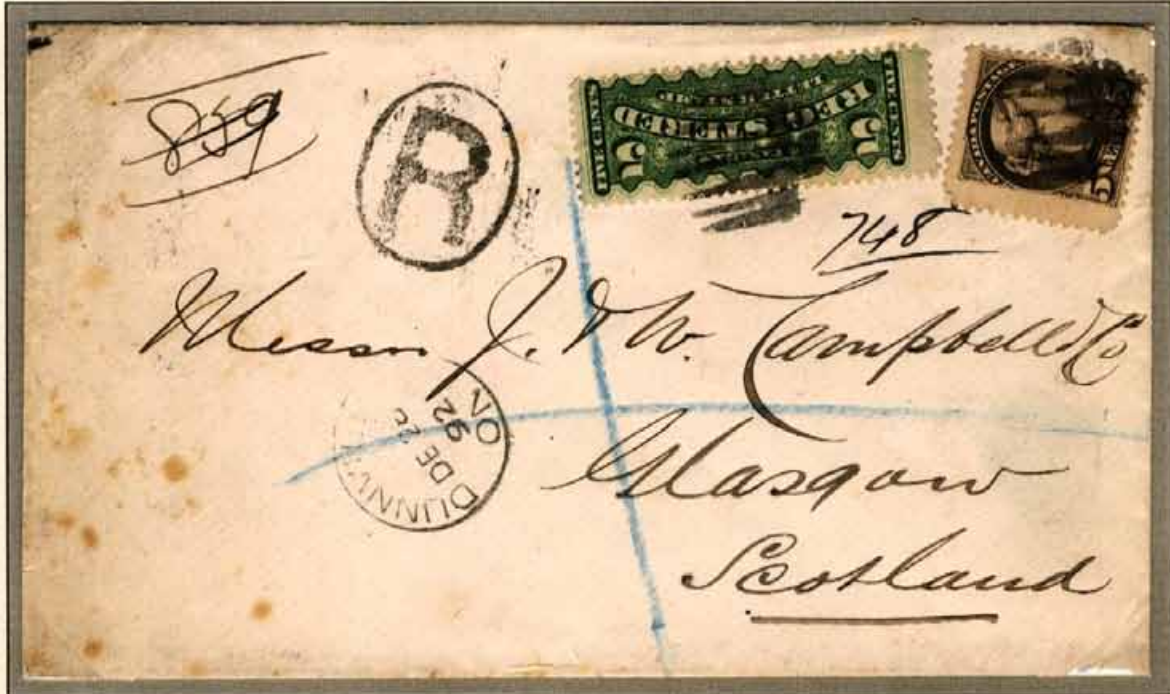 859
R
REGISTERED
5
5
5
CENTS
748
Messrs J. & W. Campbell & Co
Glasgow
Scotland
DUNNV
DE 2
92
ON